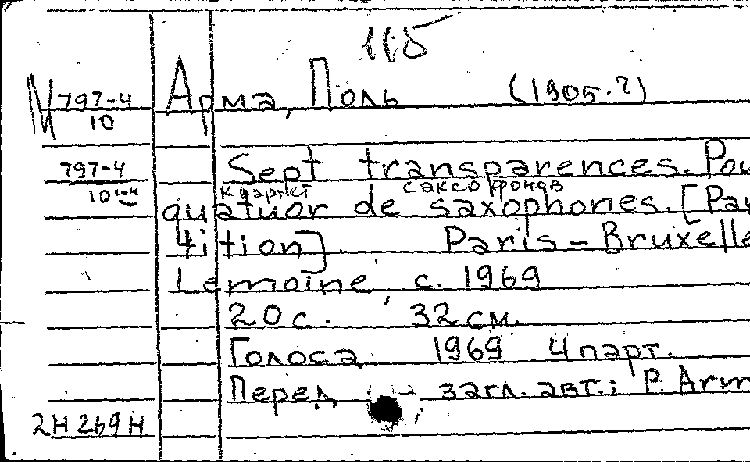 115
М 797-4 Арма, Поль (1905.?)
10
797-4 Sept transparences. Pou
10 квартет саксофонов
quatuor de saxophones. [Par
tition] Paris – Bruxelle
Lemoine, c. 1969
20 с. 32 см.
Голоса 1969 4 парт.
Перед загл. авт.: P. Arm
2Н 269Н